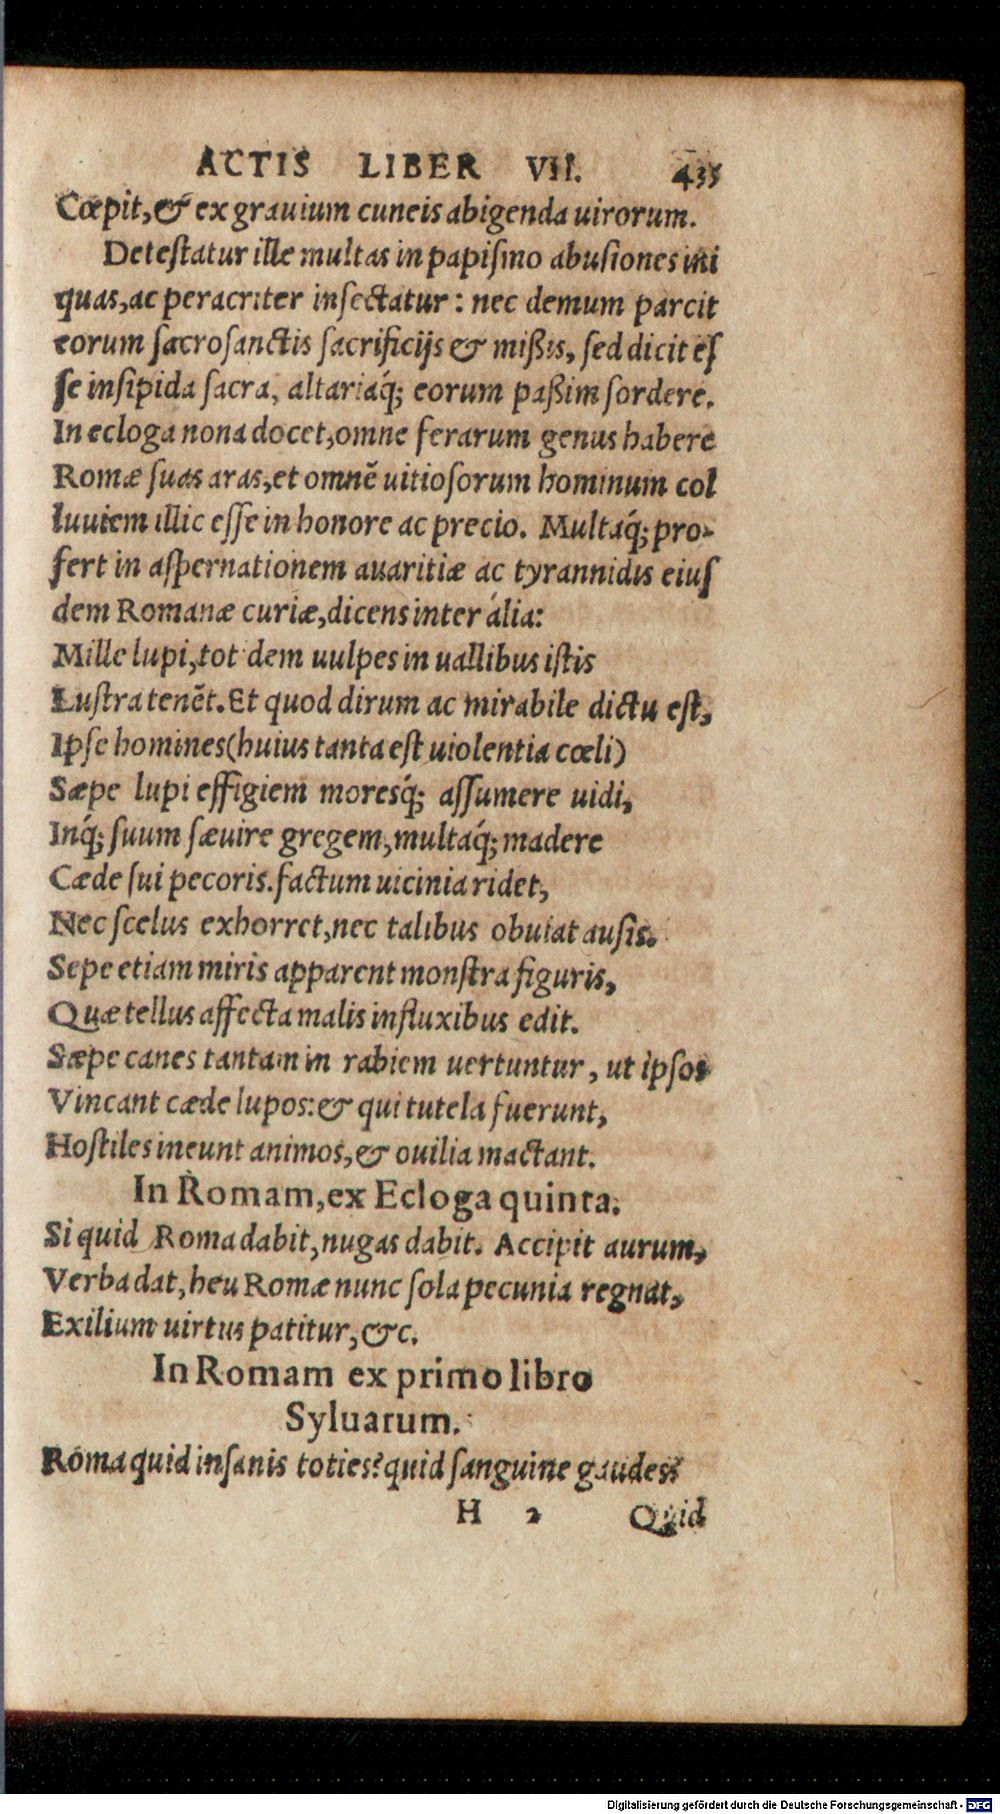 ACTIS LIBER VII. 435
Cœpit, & ex grauium cuneis abigenda uirorum.
Detestatur ille multas in papismo abusiones ini
quas, ac peracriter insectatur: nec demum parcit
eorum sacrosanctis sacrificijs & mißis, sed dicit es
se insipida sacra, altariaq́; eorum paßim sordere.
In ecloga nona docet, omne ferarum genus habere
Romæ suas aras, et omnē uitiosorum hominum col
luuiem illic esse in honore ac precio. Multaq́; pro-
fert in aspernationem auaritiæ ac tyrannidis eius
dem Romanæ curiæ, dicens inter alia:
Mille lupi, tot dem uulpes in uallibus istis
Lustra tenēt. Et quod dirum ac mirabile dictu est,
Ipse homines (huius tanta est uiolentia cœli)
Sæpe lupi effigiem moresq́; assumere uidi,
Inq́; suum sæuire gregem, multaq́; madere
Cæde sui pecoris. factum uicinia ridet,
Nec scelus exhorret, nec talibus obuiat ausis.
Sepe etiam miris apparent monstra figuris,
Quæ tellus affecta malis influxibus edit.
Sæpe canes tantam in rabiem uertuntur, ut ipsos
Vincant cæde lupos: & qui tutela fuerunt,
Hostiles ineunt animos, & ouilia mactant.
In Romam, ex Ecloga quinta.
Si quid Roma dabit, nugas dabit. Accipit aurum,
Verba dat, heu Romæ nunc sola pecunia regnat,
Exilium uirtus patitur, &c.
In Romam ex primo libro
Syluarum.
Roma quid insanis toties? quid sanguine gaudes?
H 2 Quid
Digitalisierung gefördert durch die Deutsche Forschungsgemeinschaft - DFG